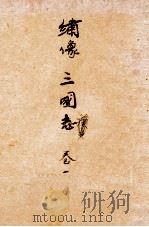 繡像
三國志
卷一
www.duxiu.com